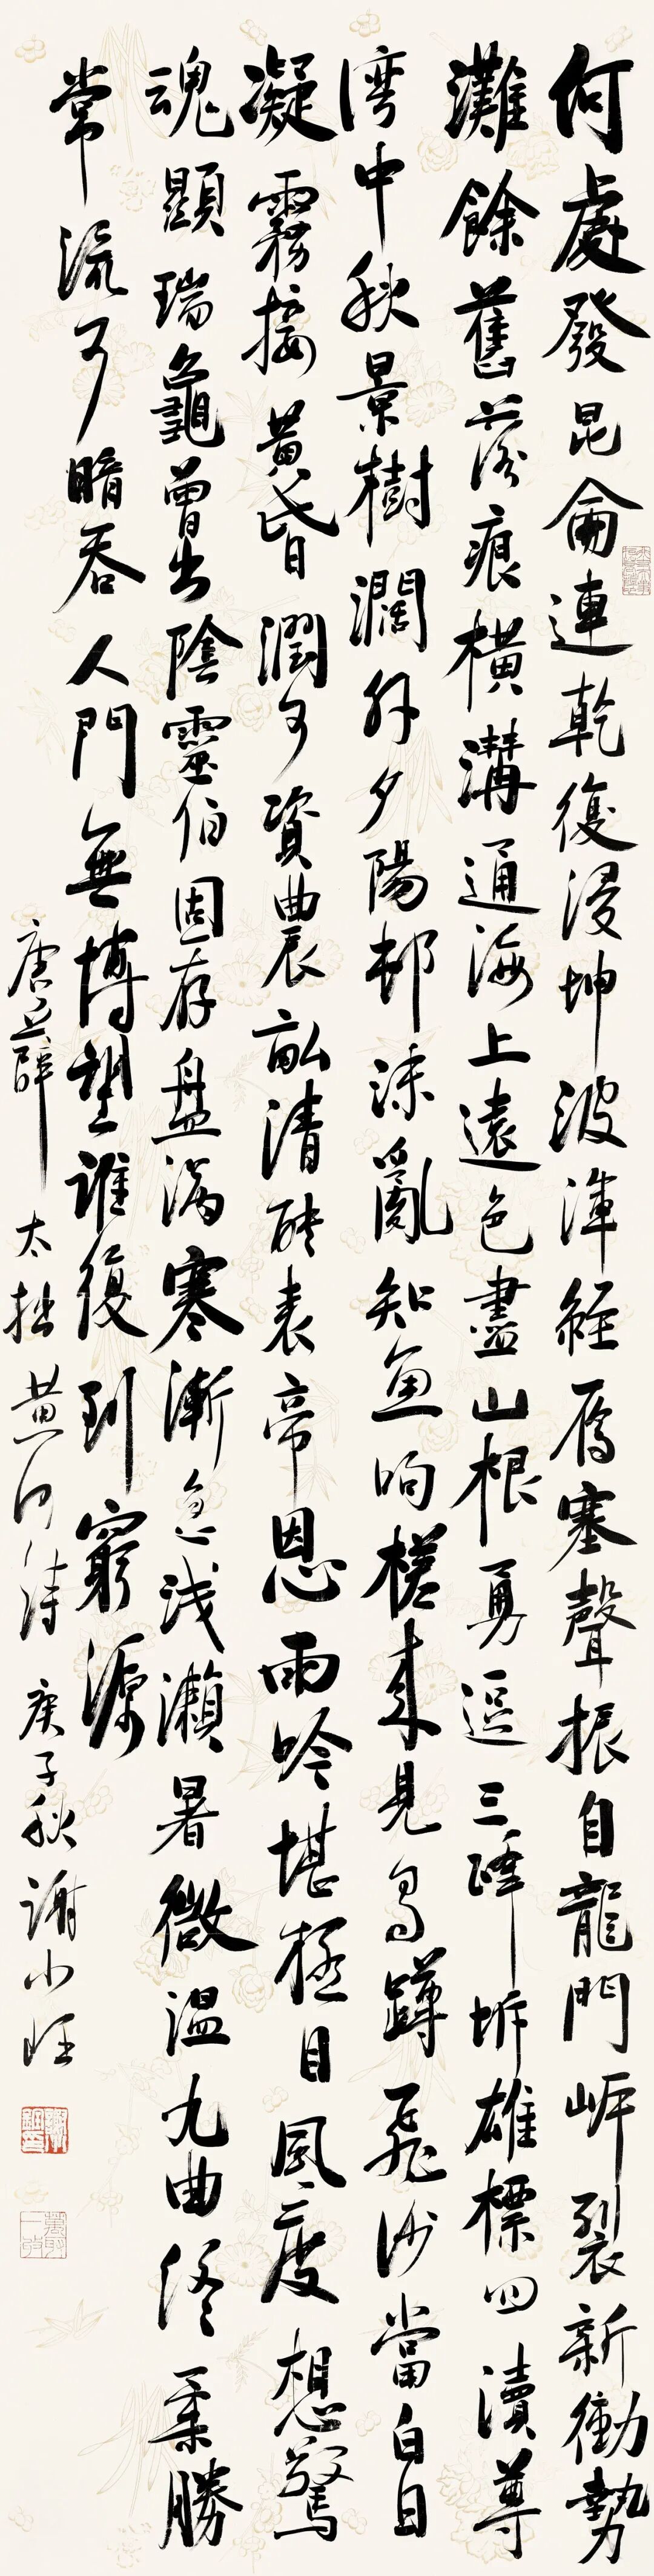 何處發昆侖連乾復浸坤波渾經雁塞聲振自龍門岸裂新衝勢
灘餘舊落痕橫溝通海上遠色盡山根勇逗三峰坼雄標四瀆尊
湾中秋景樹濶外夕陽邨沫亂知魚呴槎来見鳥蹲飛沙當白日
凝霧接黃昏潤可資農畝清能表帝恩雨吟堪極目風度想驚
魂顯瑞龜曾出陰靈伯固存盤渦寒漸急浅瀨暑微温九曲終柔勝
常流可暗吞人門無博望誰復到窮源
唐吳薛太拙黄河詩庚子秋謝小旺